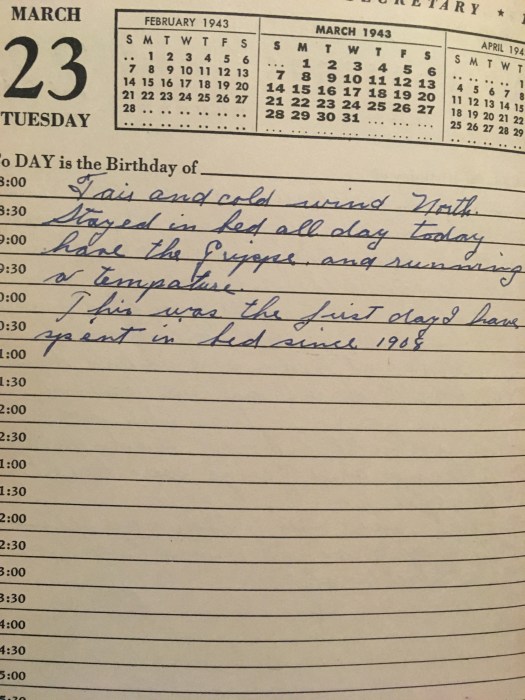 CRETARY ★
MARCH
23
TUESDAY
FEBRUARY 1943
S M T W T F S
.. 1 2 3 4 5 6
7 8 9 10 11 12 13
14 15 16 17 18 19 20
21 22 23 24 25 26 27
28 .. .. .. .. .. ..
.. .. .. .. .. .. ..
MARCH 1943
S M T W T F S
... 1 2 3 4 5 6
7 8 9 10 11 12 13
14 15 16 17 18 19 20
21 22 23 24 25 26 27
28 29 30 31 ... ... ...
... ... ... ... ... ... ...
APRIL 194
S M T W T
.. .. .. .. 1
4 5 6 7 8
11 12 13 14 15
18 19 20 21 22
25 26 27 28 29
o DAY is the Birthday of
8:00 Fair and cold wind North.
8:30 Stayed in bed all day today
9:00 have the Grippe, and running
9:30 a tempature.
0:00 This was the first day I have
0:30 spent in bed since 1908
1:00
1:30
2:00
2:30
1:00
1:30
2:00
2:30
3:00
3:30
4:00
4:30
5:00
5:30